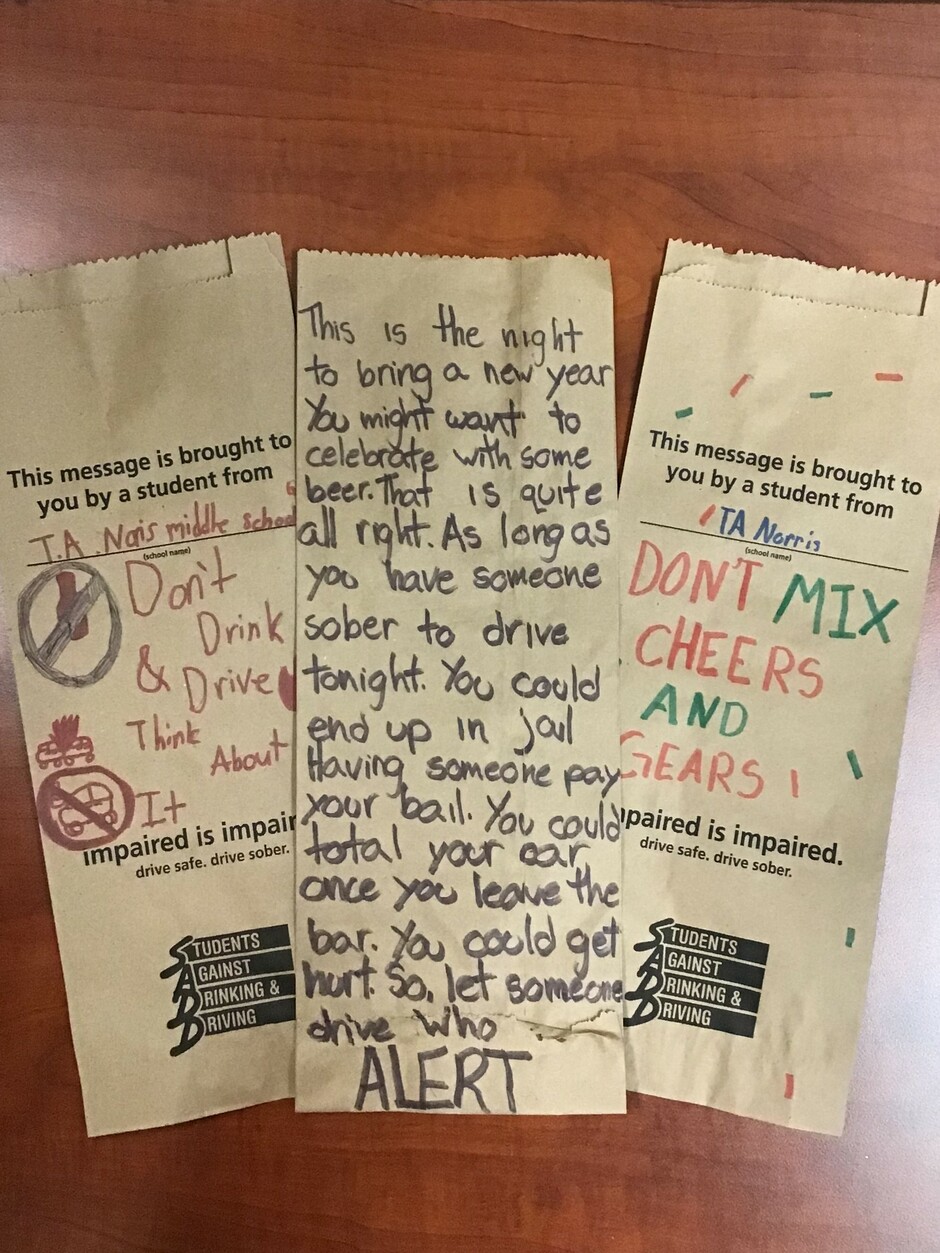 This message is brought to
you by a student from
T.A. Noris middle school
(school name)
Don't
Drink
& Drive
Think
About
It
impaired is impair
drive safe. drive sober.
STUDENTS
AGAINST
DRINKING &
DRIVING
This is the night
to bring a new year
You might want to
celebrate with some
beer. That is quite
all right. As long as
you have someone
sober to drive
tonight. You could
end up in jail
Having someone pay
your bail. You could
total your car
once you leave the
bar. You could get
hurt. So, let someone
drive who
ALERT
This message is brought to
you by a student from
TA Norris
(school name)
DON'T MIX
CHEERS
AND
GEARS
mpaired is impaired.
drive safe. drive sober.
STUDENTS
AGAINST
DRINKING &
DRIVING